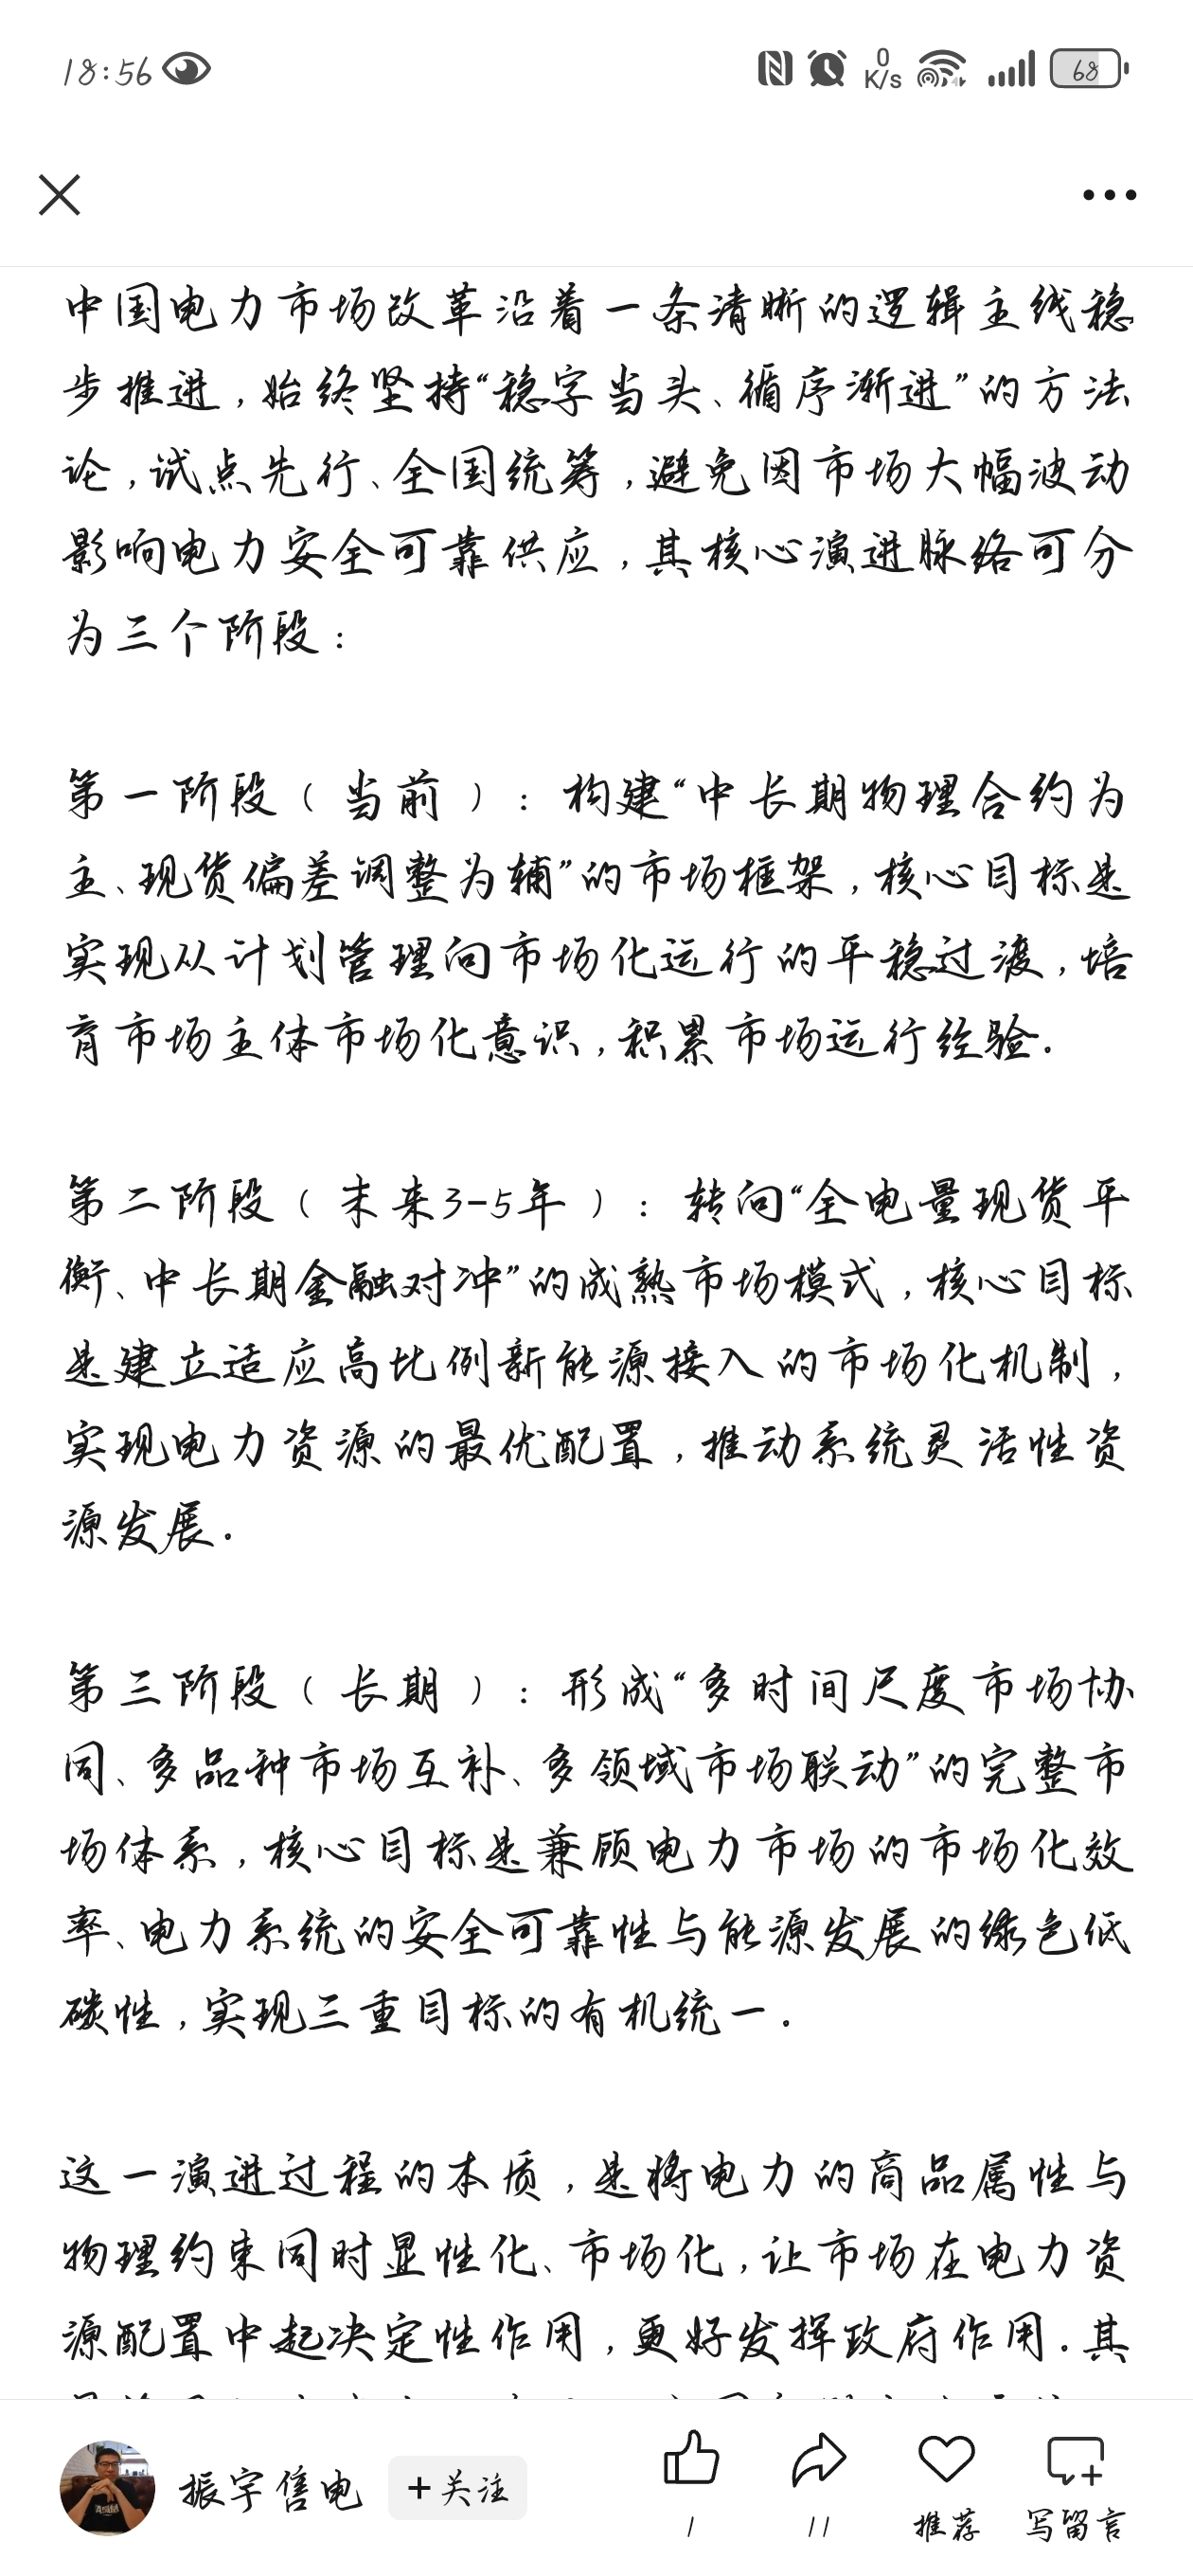 18:56
0
K/s
68
中国电力市场改革沿着一条清晰的逻辑主线稳
步推进，始终坚持“稳字当头、循序渐进”的方法
论，试点先行、全国统筹，避免因市场大幅波动
影响电力安全可靠供应，其核心演进脉络可分
为三个阶段：
第一阶段（当前）：构建“中长期物理合约为
主、现货偏差调整为辅”的市场框架，核心目标是
实现从计划管理向市场化运行的平稳过渡，培
育市场主体市场化意识，积累市场运行经验。
第二阶段（未来3-5年）：转向“全电量现货平
衡、中长期金融对冲”的成熟市场模式，核心目标
是建立适应高比例新能源接入的市场化机制，
实现电力资源的最优配置，推动系统灵活性资
源发展。
第三阶段（长期）：形成“多时间尺度市场协
同、多品种市场互补、多领域市场联动”的完整市
场体系，核心目标是兼顾电力市场的市场化效
率、电力系统的安全可靠性与能源发展的绿色低
碳性，实现三重目标的有机统一。
这一演进过程的本质，是将电力的商品属性与
物理约束同时显性化、市场化，让市场在电力资
源配置中起决定性作用，更好发挥政府作用。其
振宇售电
+关注
1
11
推荐
写留言